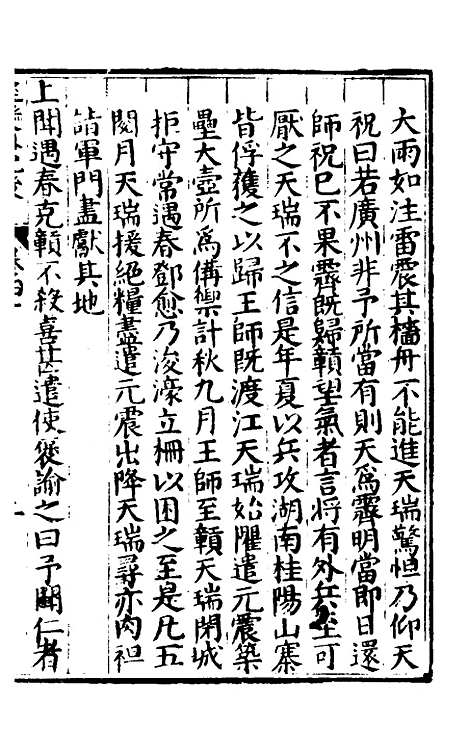 大雨如注雷震其檣舟不能進天瑞驚怛乃仰天
祝曰若廣州非予所當有則天爲霽明當即日還
師祝已不果霽既歸贛望氣者言將有外兵至可
厭之天瑞不之信是年夏以兵攻湖南桂陽山寨
皆俘獲之以歸王師既渡江天瑞始懼遣元震築
壘大壺所爲備禦計秋九月王師至贛天瑞閉城
拒守常遇春鄧愈乃浚濠立柵以困之至是凡五
閱月天瑞援絕糧盡遣元震出降天瑞尋亦肉袒
詣軍門盡獻其地
上聞遇春克贛不殺喜甚遣使褒諭之曰予聞仁者
卷四